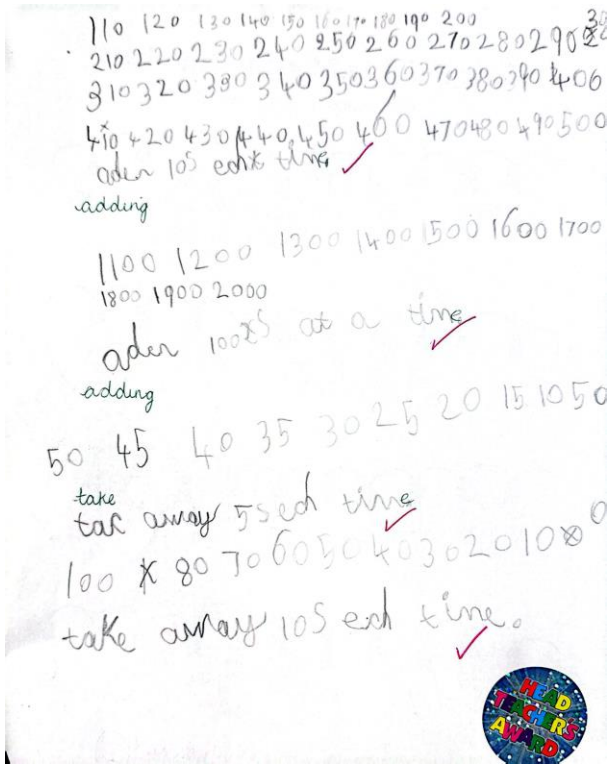 110 120 130 140 150 160 170 180 190 200
210 220 230 240 250 260 270 280 290 30
310 320 330 340 350 360 370 380 390 400
410 420 430 440 450 460 470 480 490 500
ader 10s eche time
adding
1100 1200 1300 1400 1500 1600 1700
1800 1900 2000
ader 100s at a time
adding
50 45 40 35 30 25 20 15 10 5 0
take
tac away 5s ech time
100 80 70 60 50 40 30 20 10 0
take away 10s ech time.
HEAD
TEACHER'S
AWARD